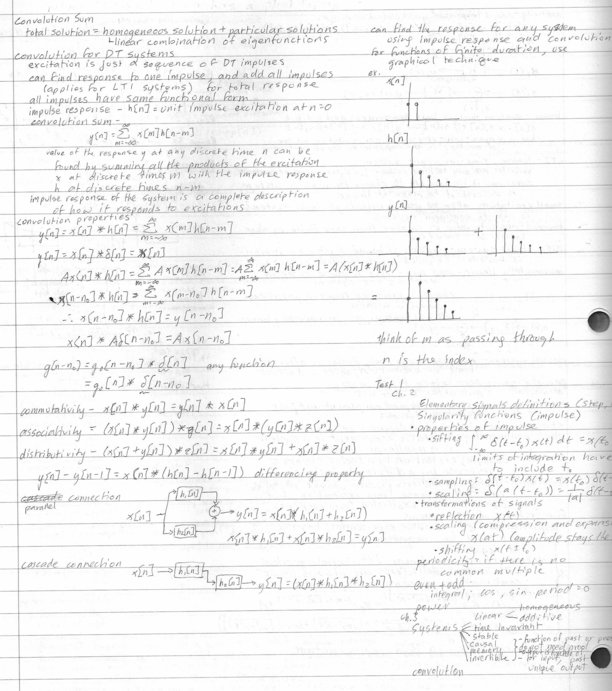 Convolution Sum
total solution = homogeneous solution + particular solutions
↳ linear combination of eigenfunctions
convolution for DT systems
excitation is just a sequence of DT impulses
can find response to one impulse, and add all impulses
(applies for LTI systems) for total response
all impulses have same functional form
impulse response - h[n] = unit impulse excitation at n=0
convolution sum -
y[n] = ∞ Σ m=-∞ x[m]h[n-m]
value of the response y at any discrete time n can be
found by summing all the products of the excitation
x at discrete times m with the impulse response
h at discrete times n-m
impulse response of the system is a complete description
of how it responds to excitations
convolution properties
y[n] = x[n] * h[n] = ∞ Σ m=-∞ x[m]h[n-m]
y[n] = x[n] * δ[n] = x[n]
Ax[n] * h[n] = ∞ Σ m=-∞ Ax[m]h[n-m] = A ∞ Σ m=-∞ x[m]h[n-m] = A(x[n] * h[n])
x[n-n₀] * h[n] = ∞ Σ m=-∞ x[m-n₀]h[n-m]
∴ x[n-n₀] * h[n] = y[n-n₀]
x[n] * Aδ[n-n₀] = Ax[n-n₀]
g[n-n₀] = g₀[n-n₀] * δ[n] any function
= g₀[n] * δ[n-n₀]
commutativity - x[n] * y[n] = y[n] * x[n]
associativity = (x[n] * y[n]) * z[n] = x[n] * (y[n] * z[n])
distributivity - (x[n] + y[n]) * z[n] = x[n] * y[n] + x[n] * z[n]
y[n] - y[n-1] = x[n] * (h[n] - h[n-1]) differencing property
cascade connection
parallel
x[n] h₁[n] h₂[n] + → y[n] = x[n] * (h₁[n] + h₂[n])
x[n] * h₁[n] + x[n] * h₂[n] = y[n]
cascade connection
x[n] → h₁[n] → h₂[n] → y[n] = (x[n] * h₁[n] * h₂[n])
can find the response for any system
using impulse response and convolution
for functions of finite duration, use
graphical technique
ex.
x[n]
h[n]
y[n]
+
=
think of m as passing through
n is the index
Test 1
Ch. 2
Elementary signals definitions (step,
Singularity functions (impulse)
• properties of impulse
• sifting ∫ ∞ -∞ δ(t-t₀)x(t) dt = x(t₀
limits of integration have
to include t₀
• sampling: δ(t-t₀)x(t) = x(t₀)δ(t-
• scaling: δ(a(t-t₀)) = 1/|a| δ(t-
• transformations of signals
• reflection x(-t)
• scaling (compression and expans
x(at) (amplitude stays the
• shifting x(t±t₀)
periodicity - if there is no
common multiple
even + odd -
integral; cos, sin period = 0
power
ch.3
linear < homogeneous
additive
Systems
time invariant
stable
causal
memory
invertible
- function of past or
for input,
unique output
convolution